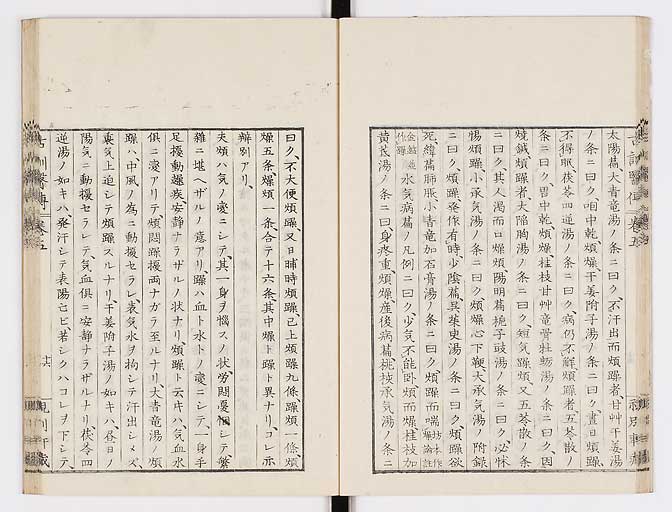 太陽篇大青竜湯ノ条ニ曰ク、不汗出而煩躁者、甘艸干姜湯
ノ条ニ曰ク、咽中乾煩燥、干姜附子湯ノ条ニ曰ク、晝日煩躁、
不得眠、茯苓四逆湯ノ条ニ曰ク、病仍不解煩躁者、五苓散ノ
条ニ曰ク、胃中乾煩燥、桂枝甘艸竜骨牡蛎湯ノ条ニ曰ク、因
焼鍼煩躁者、大陥胸湯ノ条ニ曰ク、短気躁煩、又五苓散ノ条
ニ曰ク、其人渇而口燥煩、陽明篇梔子豉湯ノ条ニ曰ク、必怵
惕煩躁、小承気湯ノ条ニ曰ク、煩躁心下鞕、大承気湯ノ附録
ニ曰ク、煩躁発作有時、少陰篇呉茱萸湯ノ条ニ曰ク、煩躁欲
死、肺脹小青竜加石膏湯ノ条ニ曰ク、煩躁而喘
水気病篇ノ凡例ニ曰ク、少気不能臥煩而燥、桂枝加
黄芪湯ノ条ニ曰ク、身疼重煩燥、産後病篇桃核承気湯ノ条ニ
曰ク、不大便煩躁、又日晡時煩躁、已上煩躁九條、躁煩一條、煩
燥五条、燥煩一条、合テ十六条、其中燥ト躁ト異ナリ、コレ亦
辨別アリ、
夫煩ハ気ノ変ニシテ、其一身ヲ悩スノ状、労悶憂悒シテ、繁
雑ニ堪ヘザルノ意アリ、躁ハ血ト水トノ変ニシテ、一身手
足擾動躁疾、安静ナラザルノ状ナリ、煩躁ト云ヰハ、気血水
倶ニ変アリテ、煩悶躁擾両ナガラ至ルナリ、大青竜湯ノ煩
躁ハ、中風ノ為ニ動擾セラレ、表気水ヲ拘シテ汗出シメズ、
裏気上迫シテ煩躁スルナリ、干姜附子湯ノ如キハ、昼日ノ
陽気ニ動擾セラレテ、気血倶ニ安静ナラザルナリ、茯苓四
逆湯ノ如キハ、発汗シテ表陽亡ビ、若シクハコレヲ下シテ、